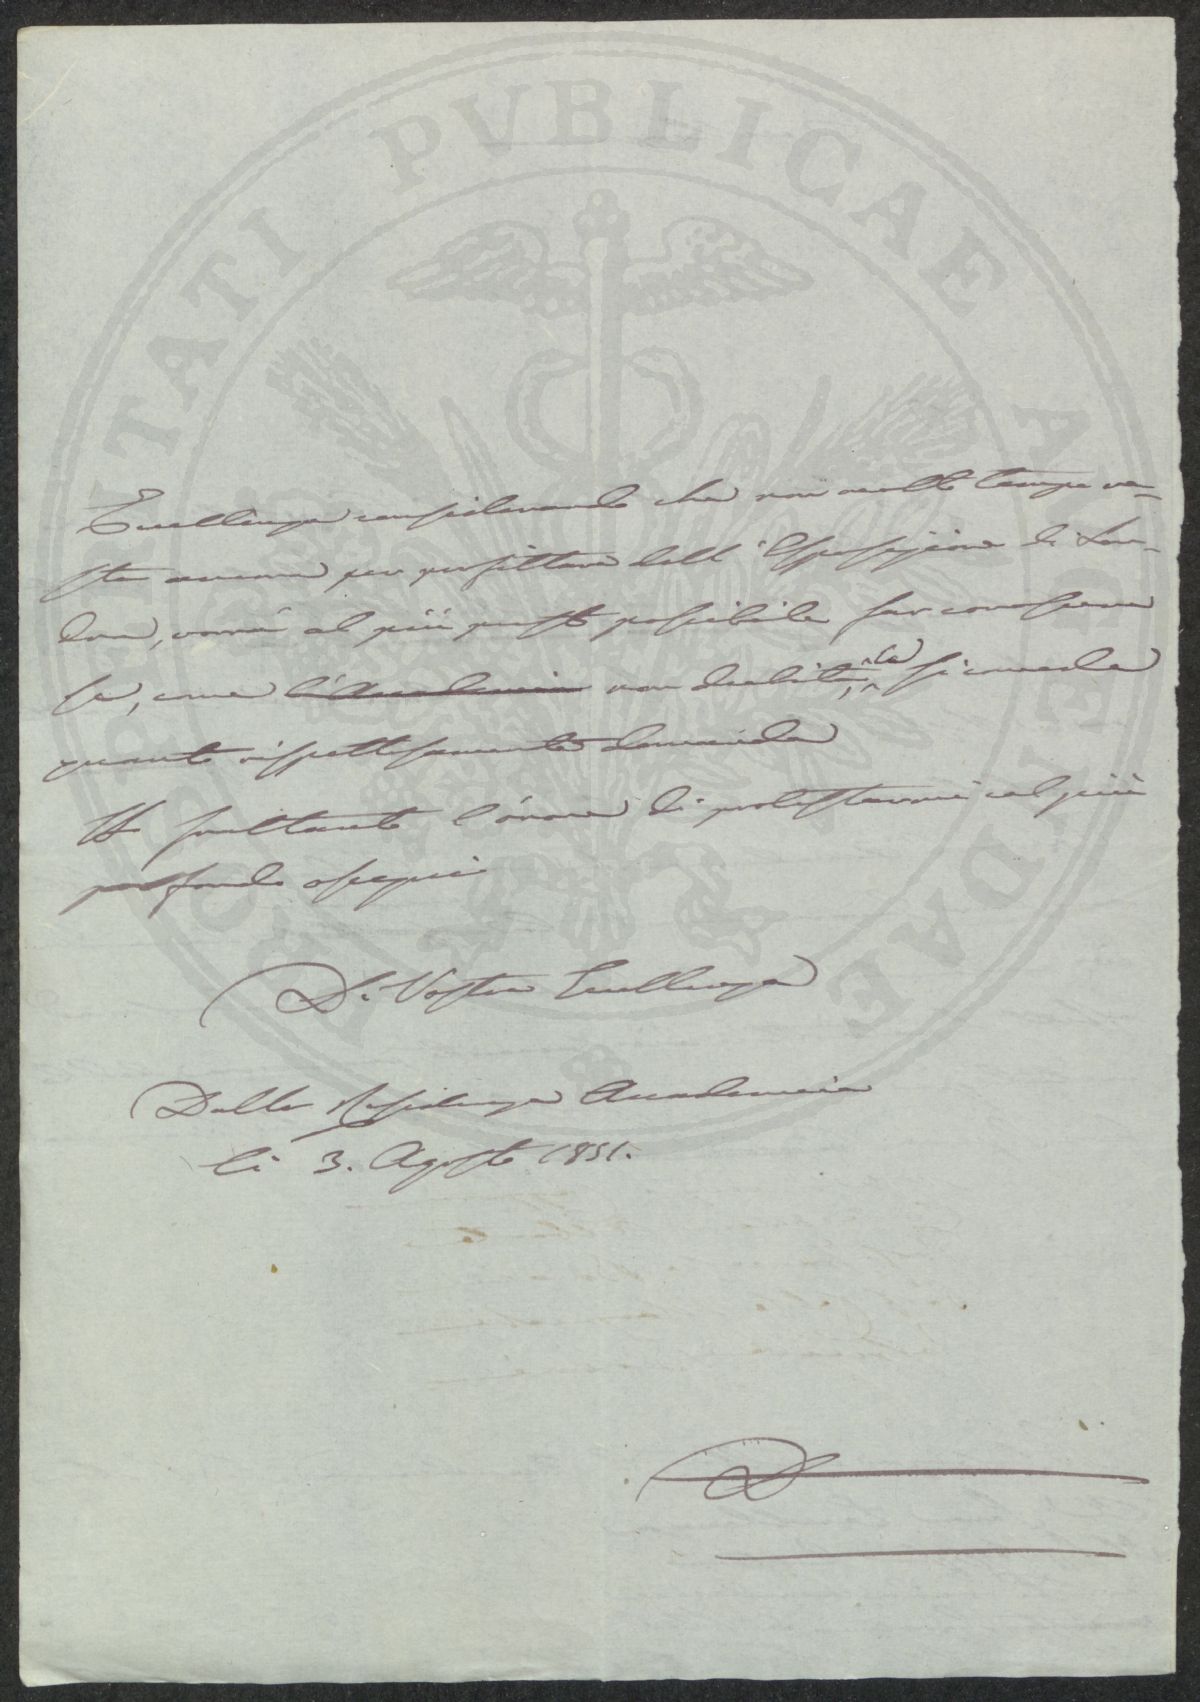 PROSPERITATI PVBLICAE AVGENDAE
Eccellenza considerando che non molto tempo re-
sta ancora per profittare dell'Esposizione di Lon-
dra, vorrà al più presto possibile far conoscere
se, come l'Accademia non dubita, le si conceda
quanto rispettosamente domanda
Ho frattanto l'onore di protestarmi col più
profondo ossequio
Di Vostra Eccellenza
Dalla Residenza Accademica
li 3. Agosto 1851.